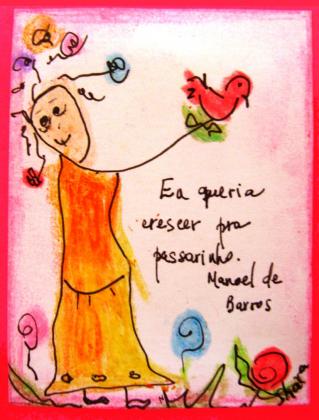 Eu queria
crescer pra
passarinho.
Manoel de
Barros